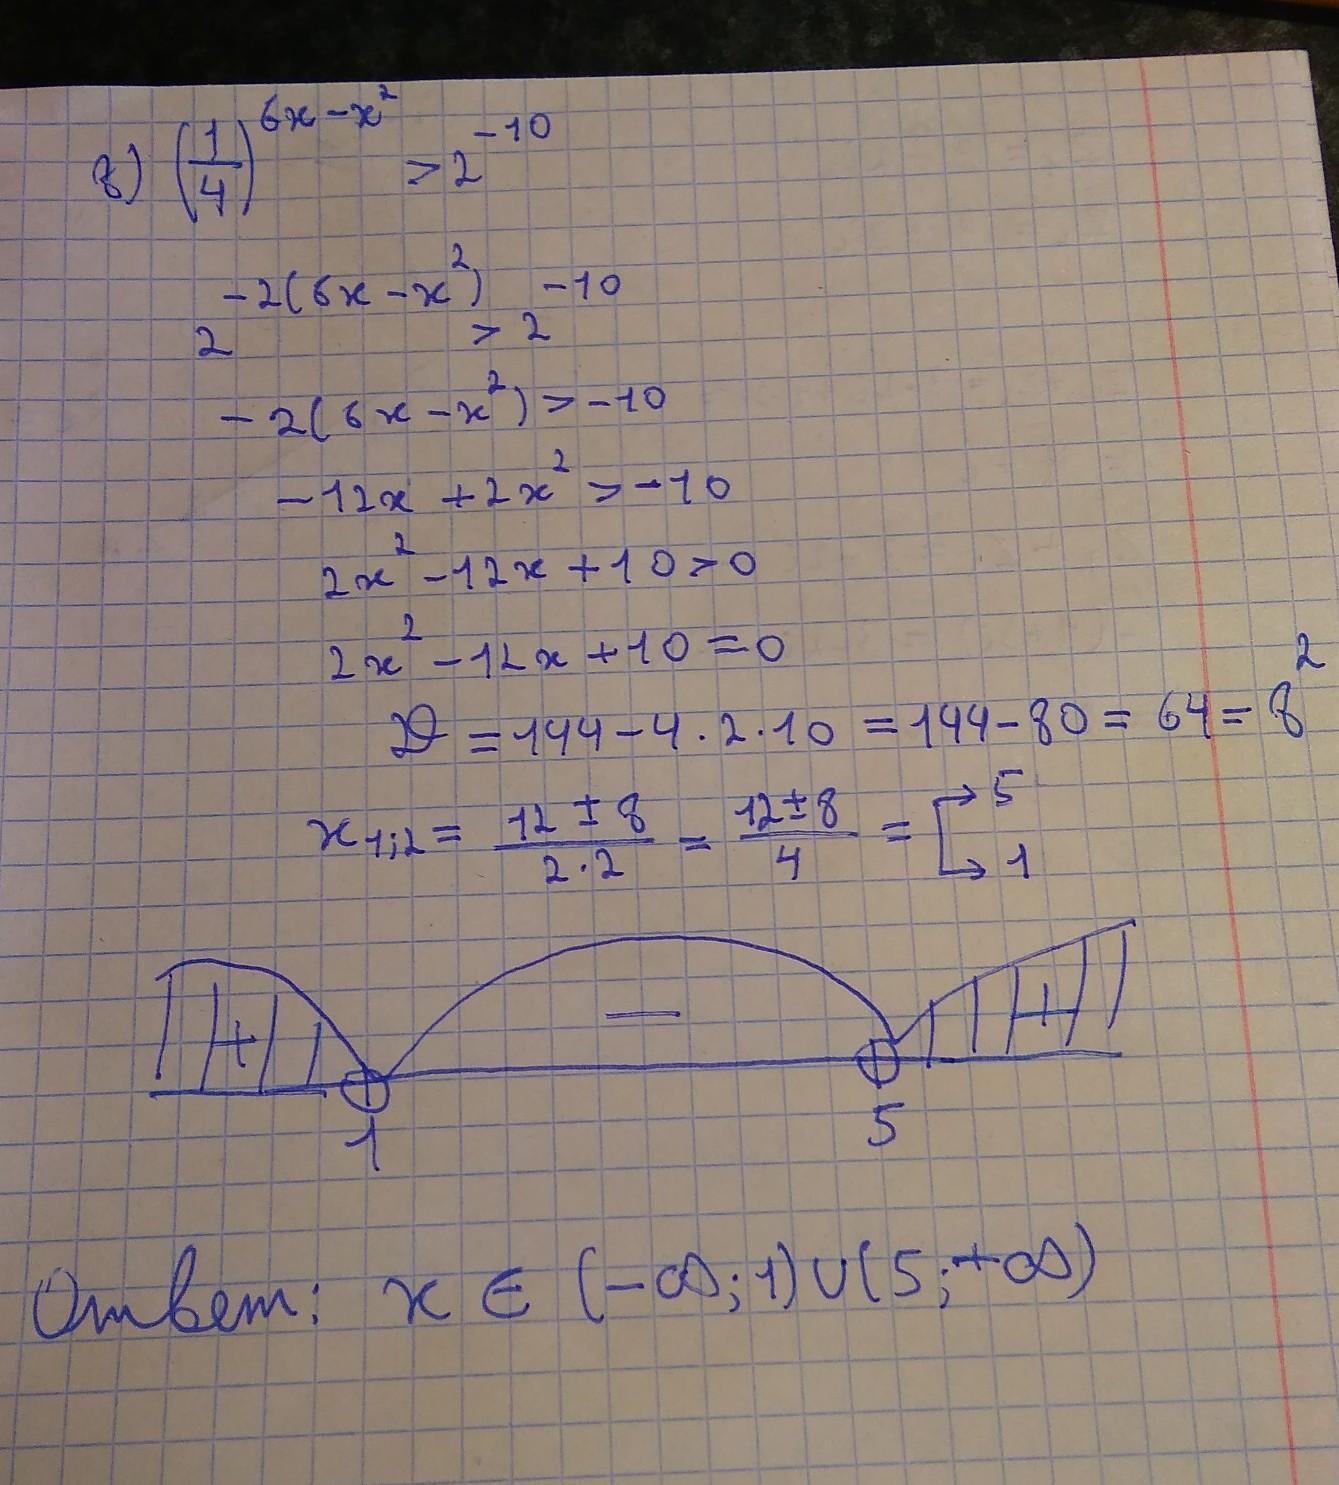 8) (1/4)^(6x-x²) > 2^(-10)
2^(-2(6x-x²)) > 2^(-10)
-2(6x-x²) > -10
-12x + 2x² > -10
2x² - 12x + 10 > 0
2x² - 12x + 10 = 0
D = 144 - 4·2·10 = 144 - 80 = 64 = 8²
x1;2 = (12 ± 8)/(2·2) = (12 ± 8)/4 = [→ 5 → 1
+ — +
1 5
Ответ: x ∈ (-∞; 1) ∪ (5; +∞)